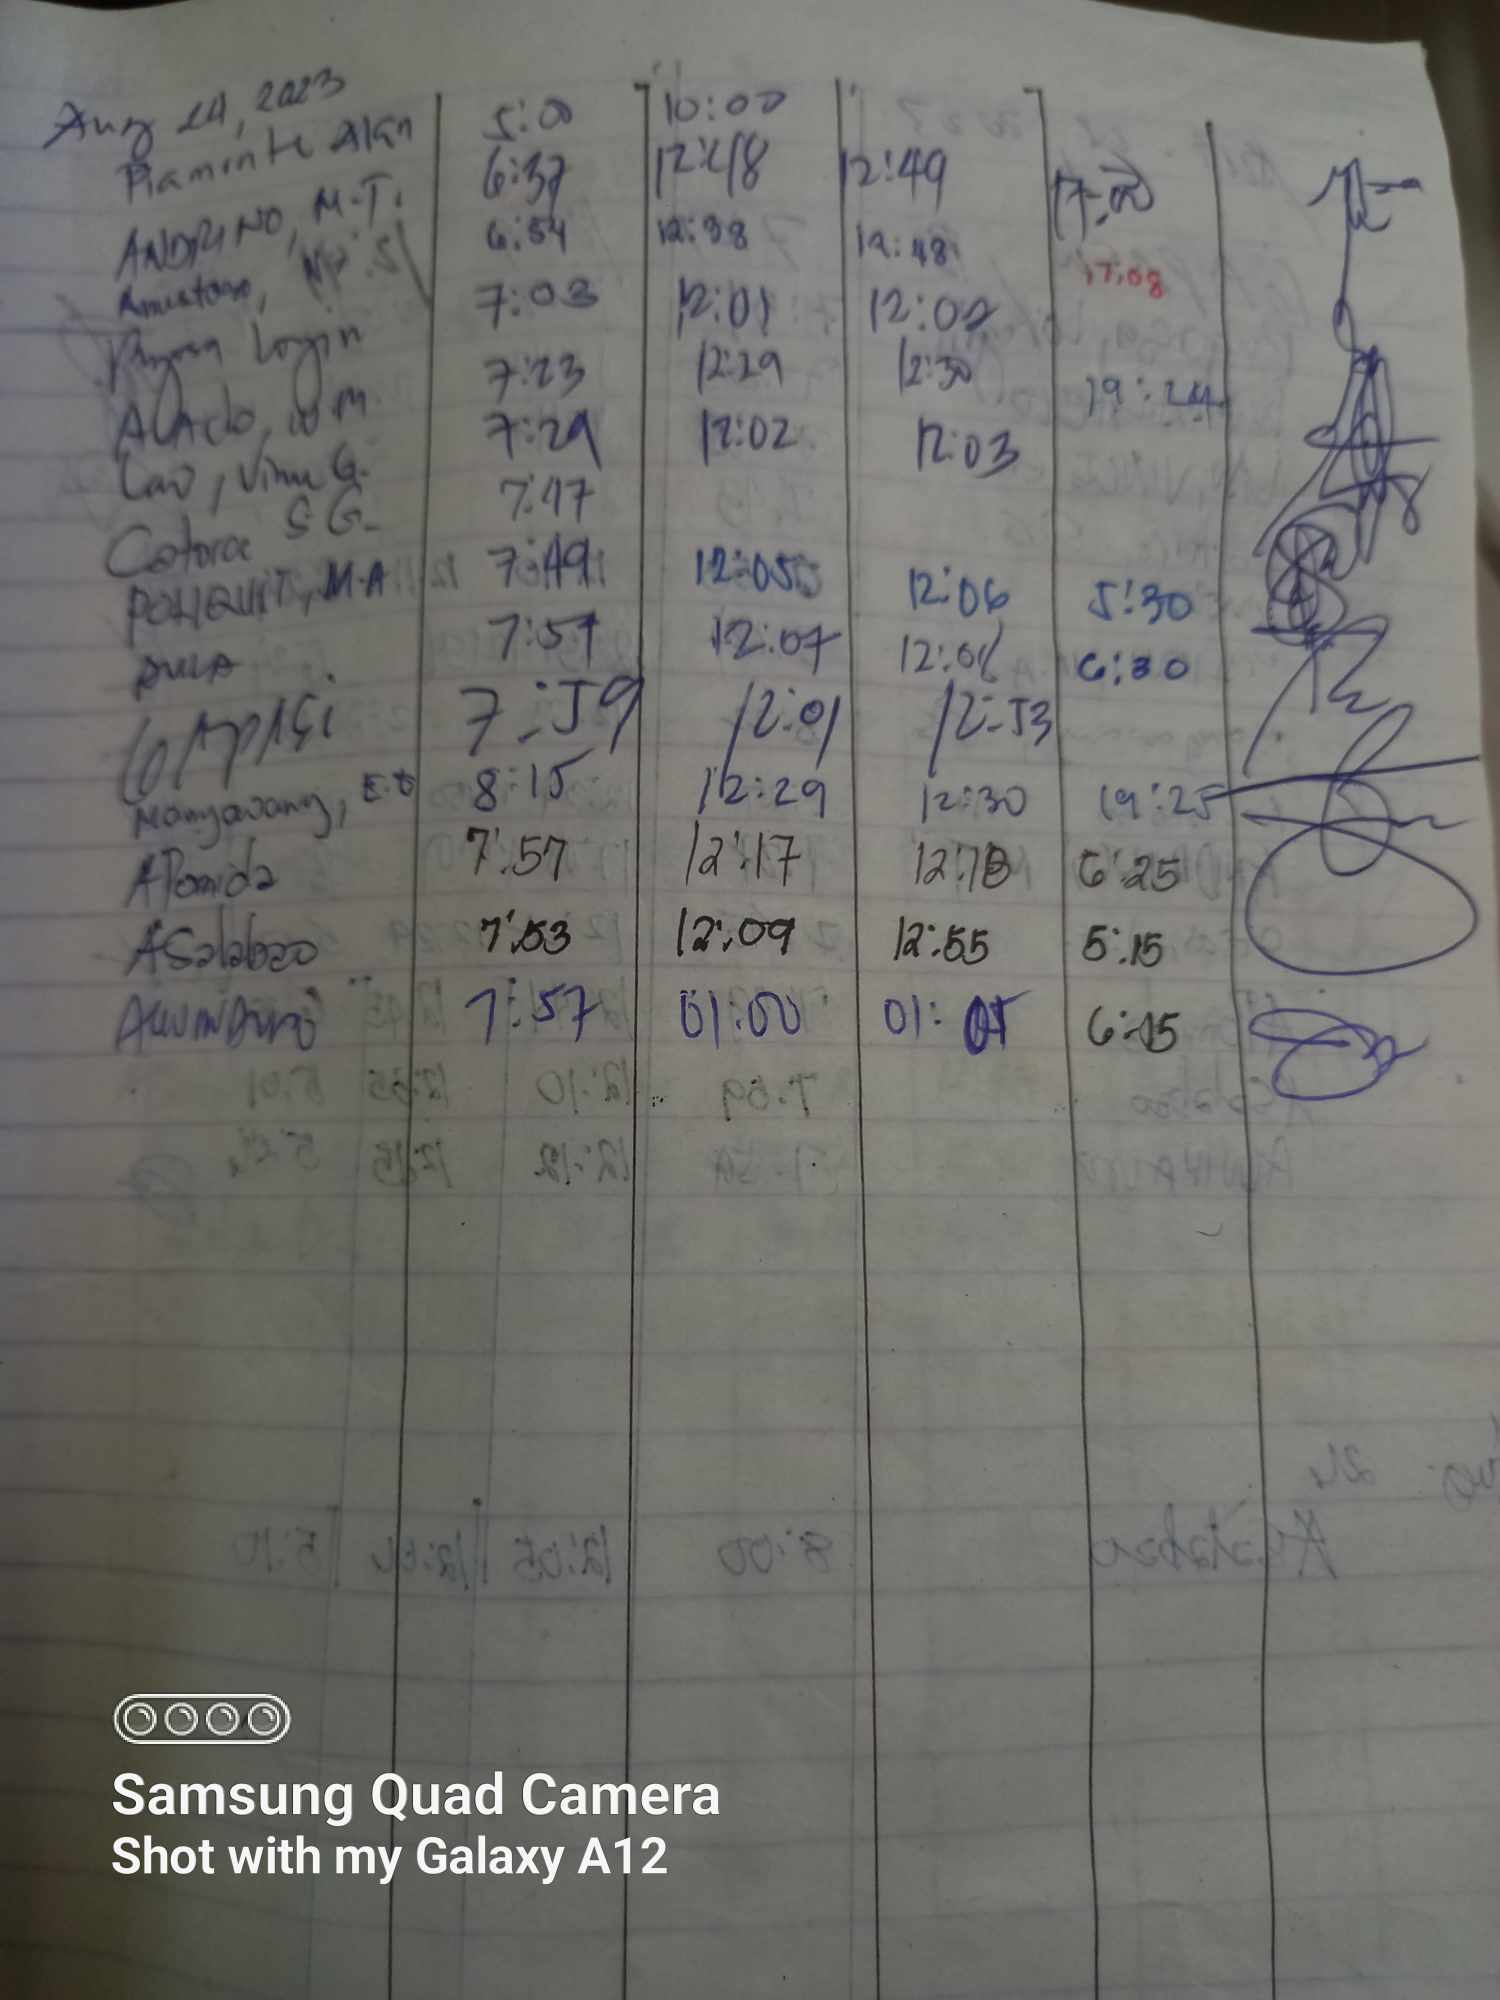 Aug 24, 2023
Piamonte Alan 5:00 10:00
ANDRINO, M.T. 6:37 12:48 12:49 17:00
6:54 12:38 12:48 17:08
Login 7:03 12:01 12:02
Alaclo, W M. 7:23 12:29 12:30 19:24
Cao, Vinu G. 7:29 12:02 12:03
Cotora S G. 7:47
POLIQUIT, M.A 7:49 12:05 12:06 5:30
AULA 7:57 12:07 12:08 6:30
7-59 12:01 12-53
Manyawang, E.D 8:15 12:29 12:30 19:25
APomida 7:57 12:17 12:18 6:25
ASalabao 7:53 12:09 12:55 5:15
7:57 01:00 01:05 6:15
Samsung Quad Camera
Shot with my Galaxy A12